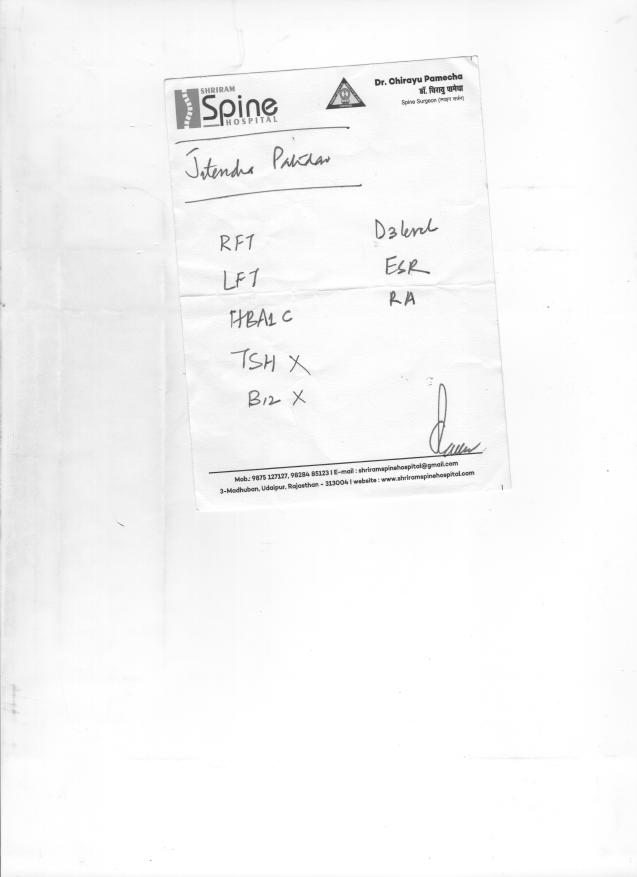 SHRIRAM
Spine
HOSPITAL
Dr. Chirayu Pamecha
डॉ. चिरायु पामेचा
Spine Surgeon (स्पाइन सर्जन)
Jitendra Patidar
RFT
LFT
HBA1C
TSH X
B12 X
D3 level
ESR
RA
Mob.: 9875 127127, 98284 85123 | E-mail : shriramspinehospital@gmail.com
3-Madhuban, Udaipur, Rajasthan - 313004 | website : www.shriramspinehospital.com